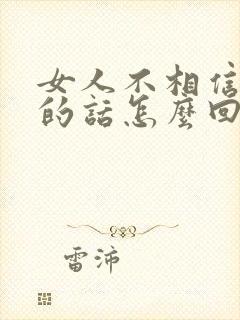 女人不相信
的話怎麼回
雷沛